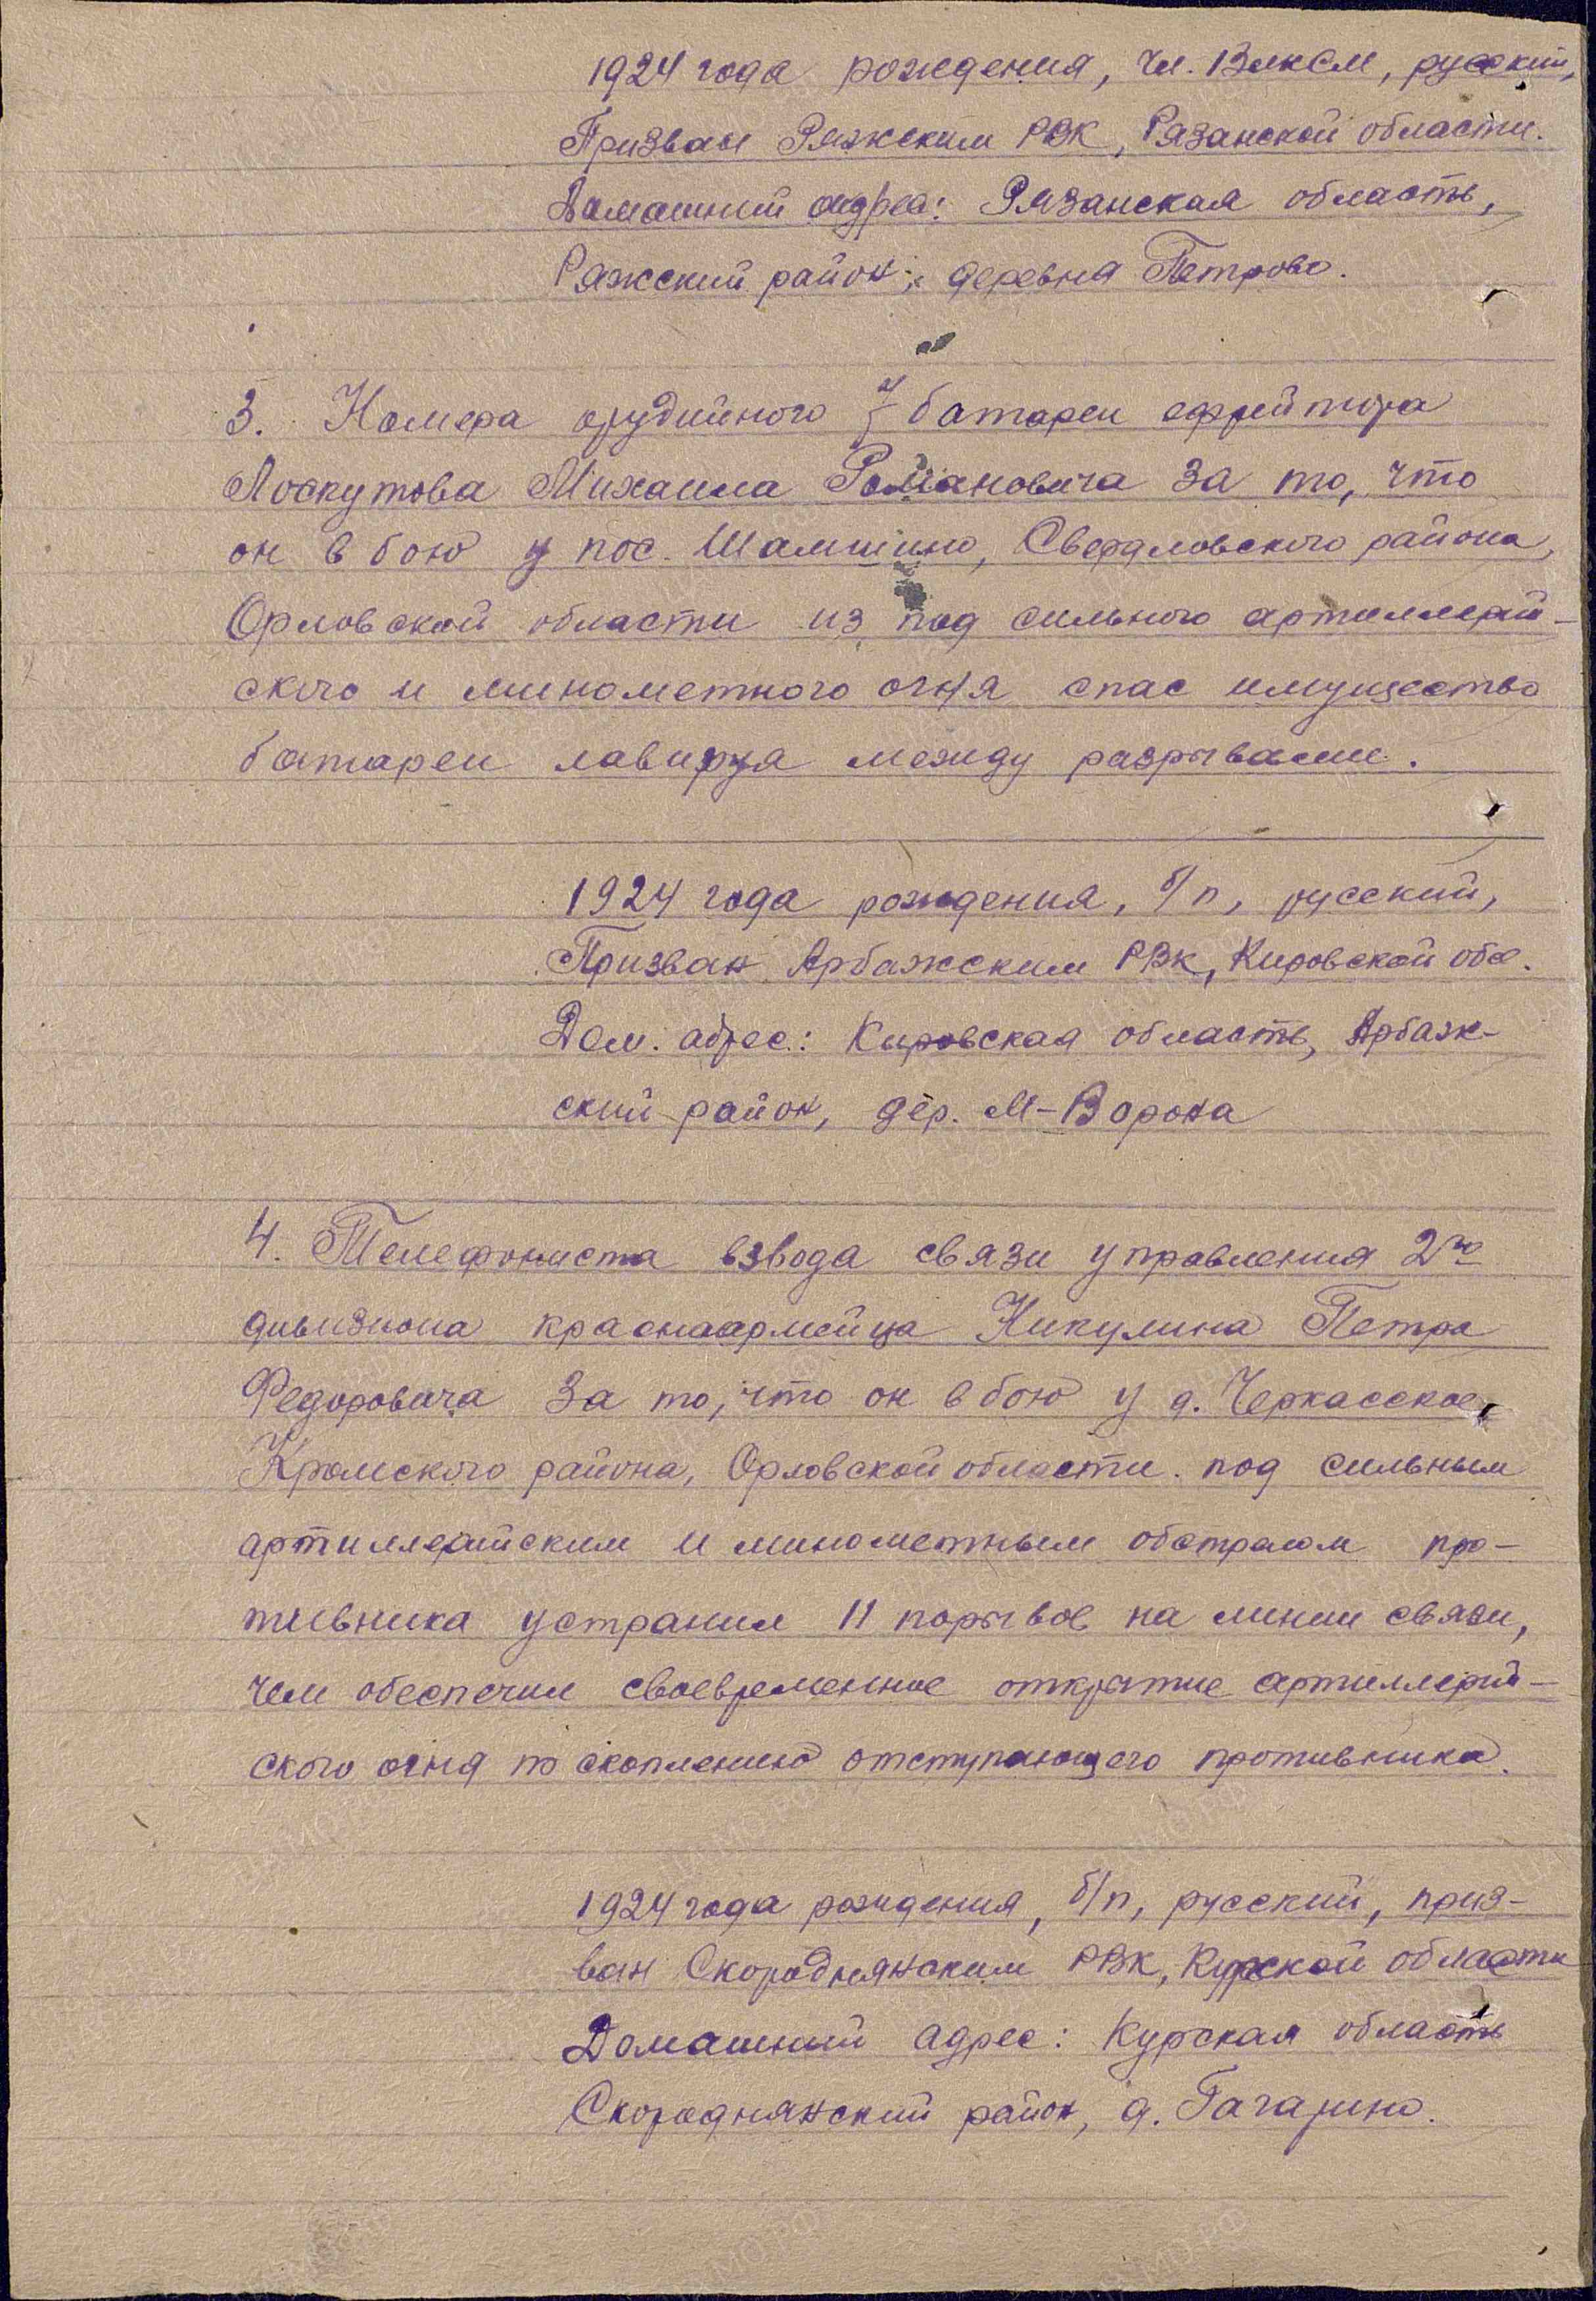 1924 года рождения, чл. ВЛКСМ, русский,
Призван Ряжским РВК, Рязанской области.
Домашний адрес: Рязанская область,
Ряжский район, деревня Петрово.
3. Номера орудийного батареи ефрейтора
Лоскутова Михаила Романовича за то, что
он в бою у пос. Шамшино, Свердловского района,
Орловской области из под сильного артиллерий-
ского и минометного огня спас имущество
батареи лавируя между разрывами.
1924 года рождения, б/п, русский,
Призван Арбажским РВК, Кировской обл.
Дом. адрес: Кировская область, Арбаж-
ский район, дер. М-Ворона
4. Телефониста взвода связи управления 2го
дивизиона красноармейца Никулина Петра
Федоровича за то, что он в бою у д. Черкасское,
Кромского района, Орловской области. под сильным
артиллерийским и минометным обстрелом про-
тивника устранил 11 порывов на линии связи,
чем обеспечил своевременное открытие артиллерий-
ского огня по скоплению отступающего противника.
1924 года рождения, б/п, русский, приз-
ван Скороднянским РВК, Курской области
Домашний адрес: Курская область
Скороднянский район, д. Гагарино.